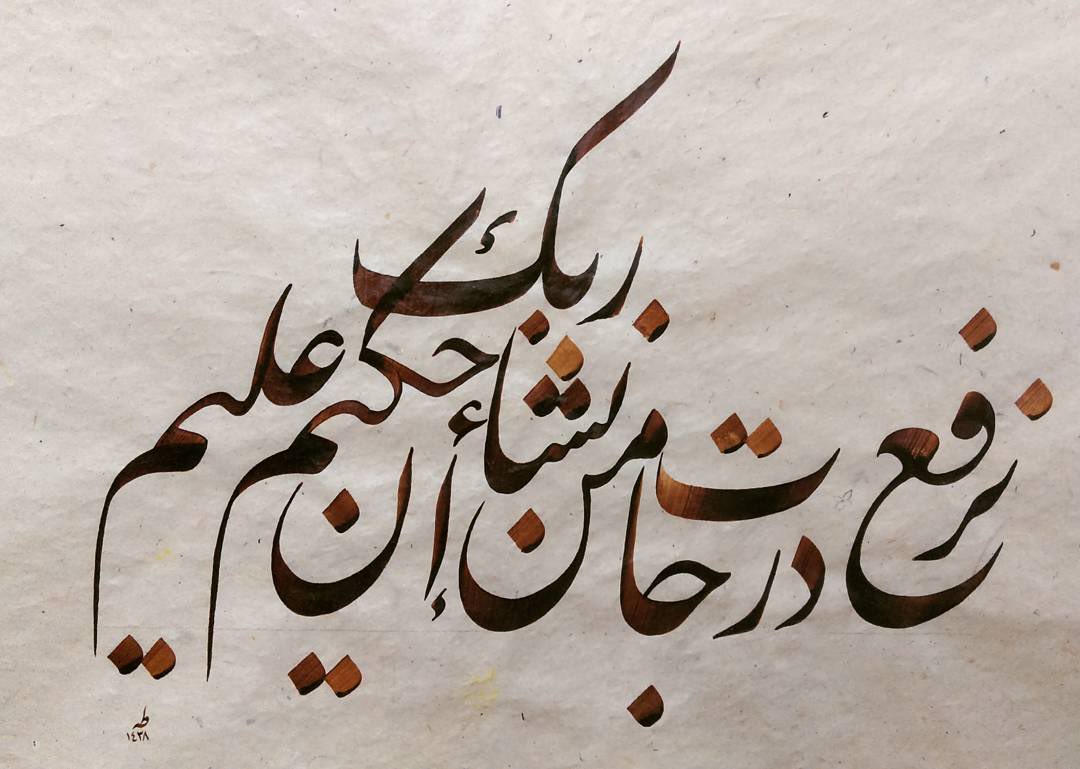 نرفع درجات من نشاء إن ربك حكيم عليم
طه
١٤٣٨